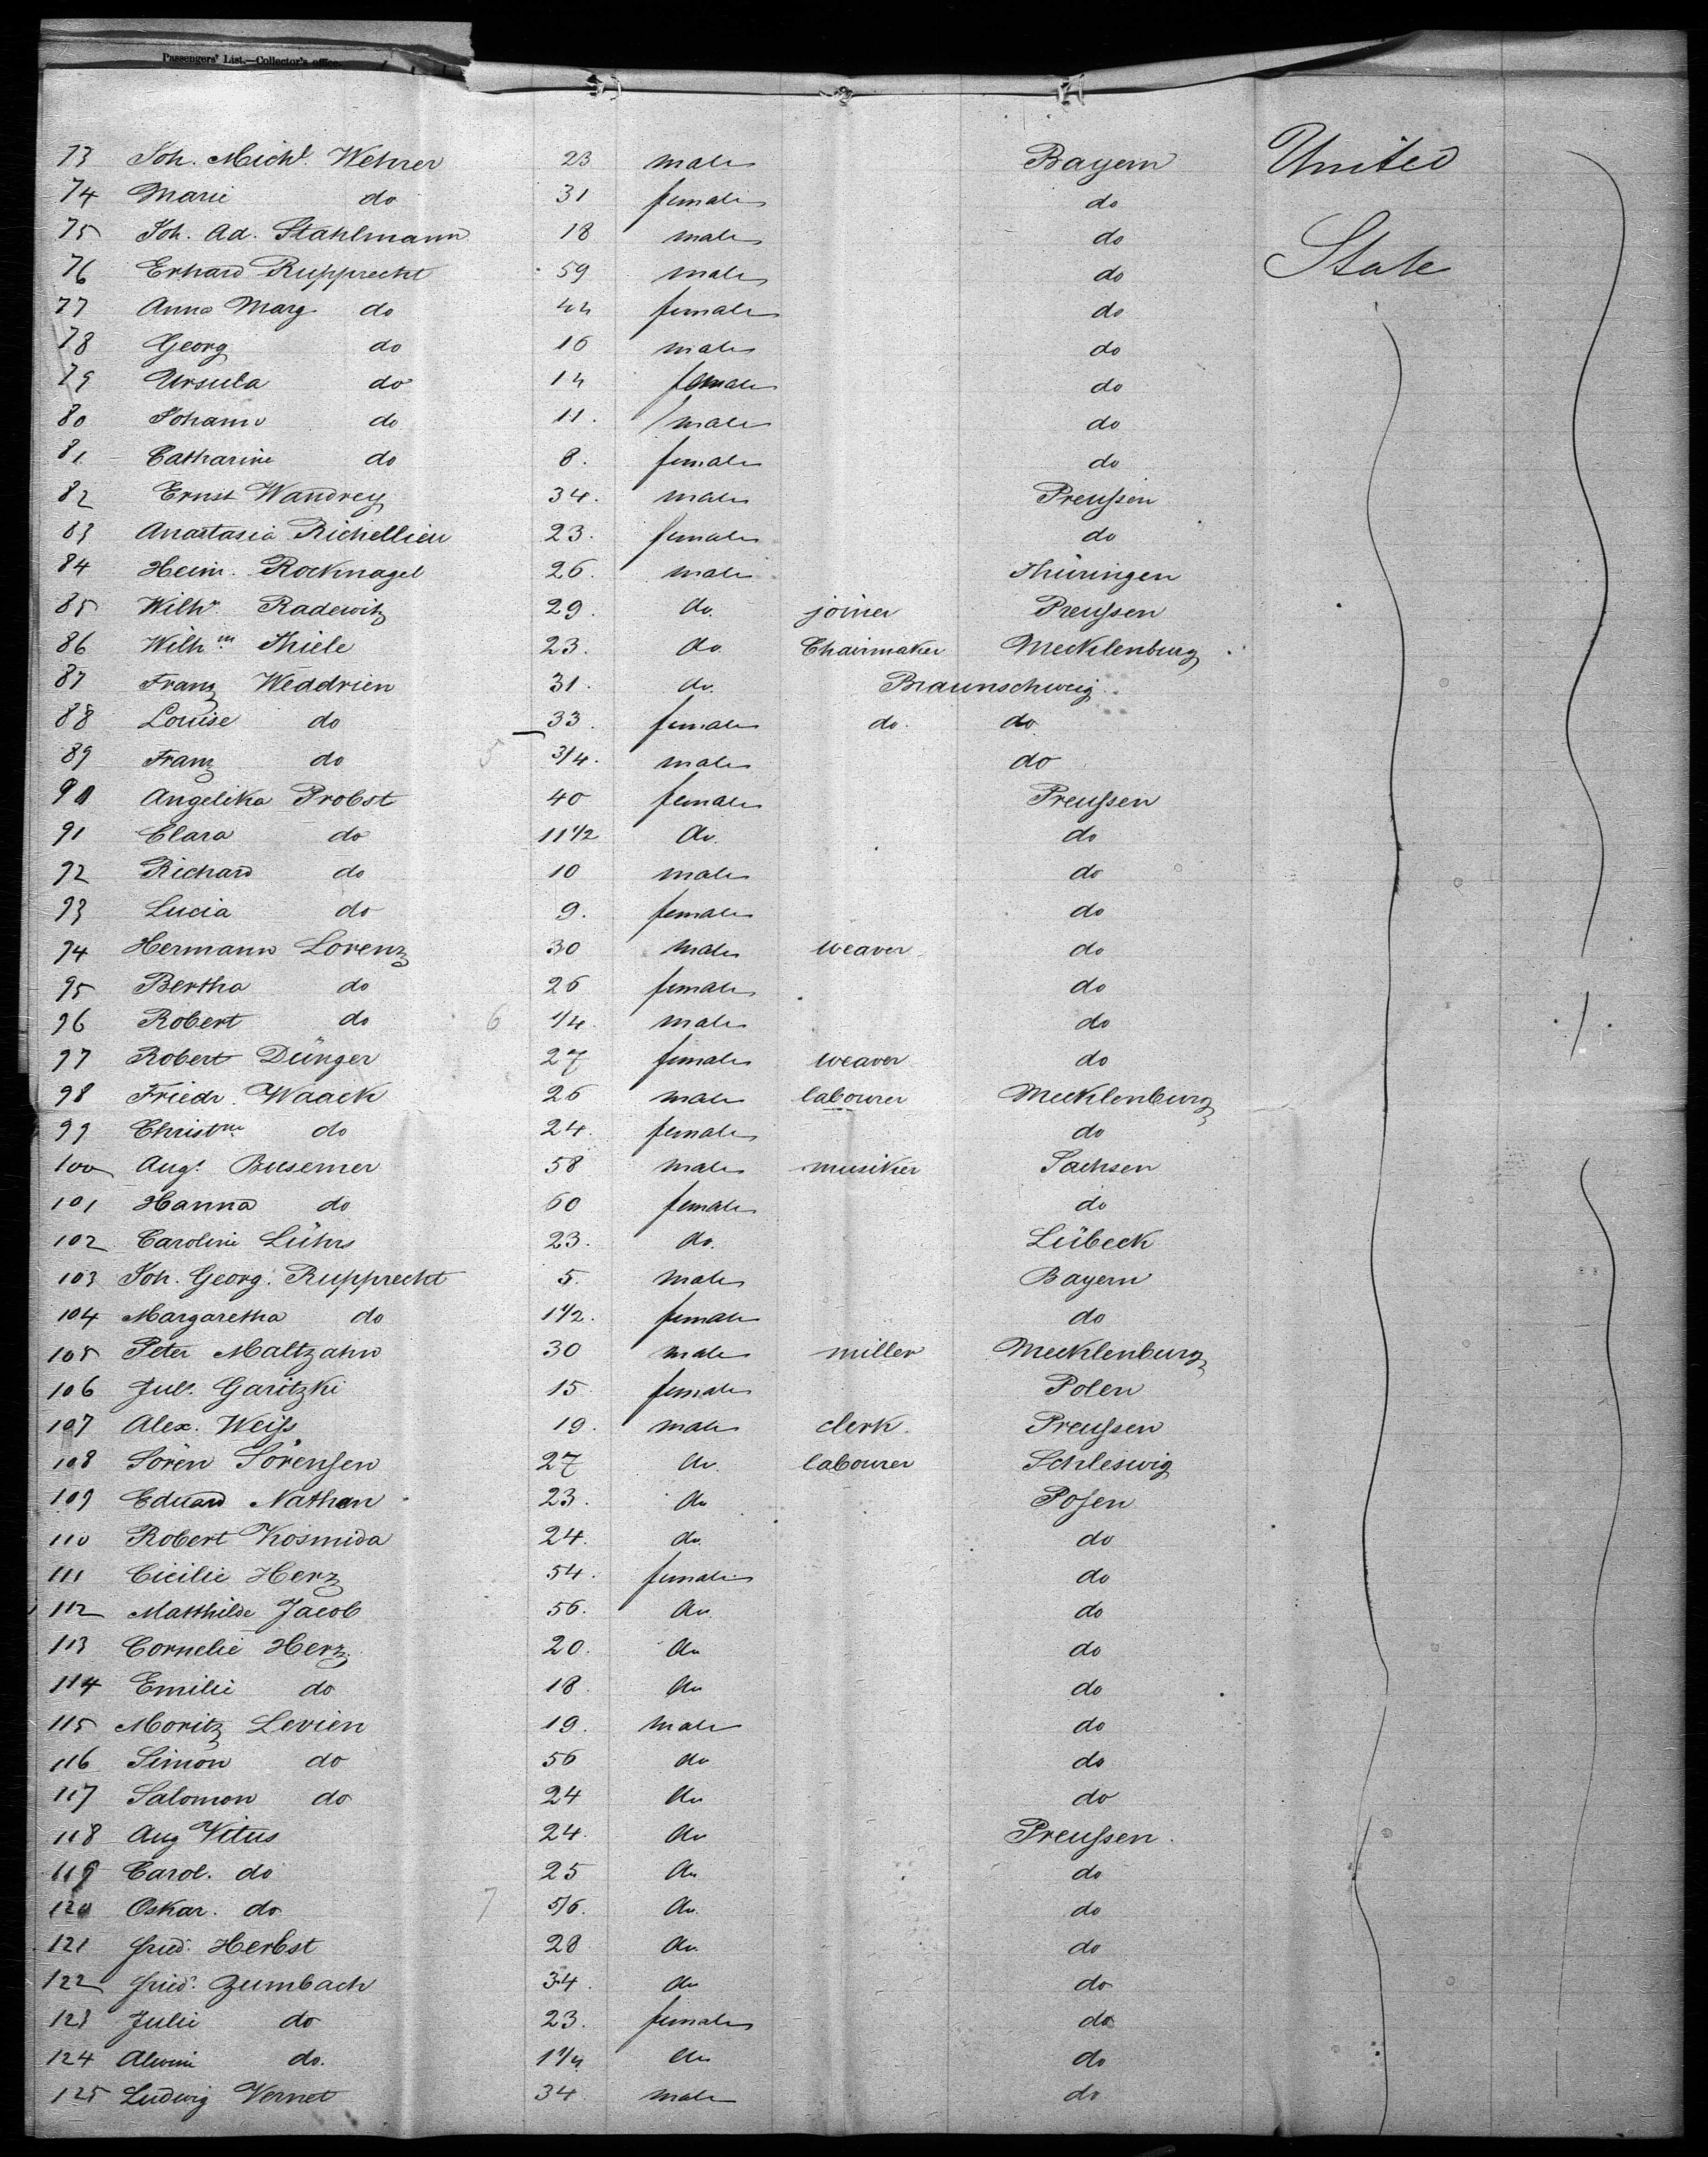 Passengers' List.—Collector's office.
73 Joh. Michl. Wehrer 23 male Bayern United
74 Marie do 31 female do
75 Joh. Ad. Stahlmann 18 male do State
76 Erhard Rupprecht 59 male do
77 Anna Marg. do 44 female do
78 Georg do 16 male do
79 Ursula do 14 female do
80 Johann do 11. male do
81 Catharine do 8. female do
82 Ernst Wandrey 34. male Preußen
83 Anastasia Richellieu 23. female do
84 Heinr. Rocknagel 26. male Thüringen
85 Wilhm Radewitz 29. do. joiner Preußen
86 Wilhm Thiele 23. do Chairmaker Mecklenburg
87 Franz Weddrien 31. do. Braunschweig
88 Louise do 33. female do. do
89 Franz do 5 3/4. male do
90 Angelika Probst 40 female Preußen
91 Clara do 11 1/2 do. do
92 Richard do 10 male do
93 Lucia do 9. female do
94 Hermann Lorenz 30 male weaver do
95 Bertha do 26 female do
96 Robert do 6 1/4. male do
97 Robert Dünger 27 female weaver do
98 Friedr. Waack 26 male labourer Mecklenburg
99 Christne do 24. female do
100 Augt. Busemer 58 male musiker Sachsen
101 Hanna do 60 female do
102 Caroline Lührs 23. do. Lübeck
103 Joh. Georg. Rupprecht 5. male Bayern
104 Margaretha do 1 1/2. female do
105 Peter Maltzahn 30 male miller Mecklenburg
106 Juls. Garitzki 15 female Polen
107 Alex. Weiß 19. male clerk. Preußen
108 Sören Sörensen 27 do. labourer Schleswig
109 Eduard Nathan 23. do Posen
110 Robert Kosmida 24. do. do
111 Cicilie Herz 54. female do
112 Matthilde Jacob 56. do. do
113 Cornelie Herz 20. do do
114 Emilie do 18 do do
115 Moritz Levien 19. male do
116 Simon do 56 do do
117 Salomon do 24 do do
118 Aug Vitus 24. do Preußen.
119 Carol. do 25 do do
120 Oskar. do 7 5/6. do. do
121 Fried. Herbst 28 do. do
122 Fried. Zumbach 34. do do
123 Julie do 23. female do
124 Alwine do. 1 1/4 do do
125 Ludwig Vernet 34 male do